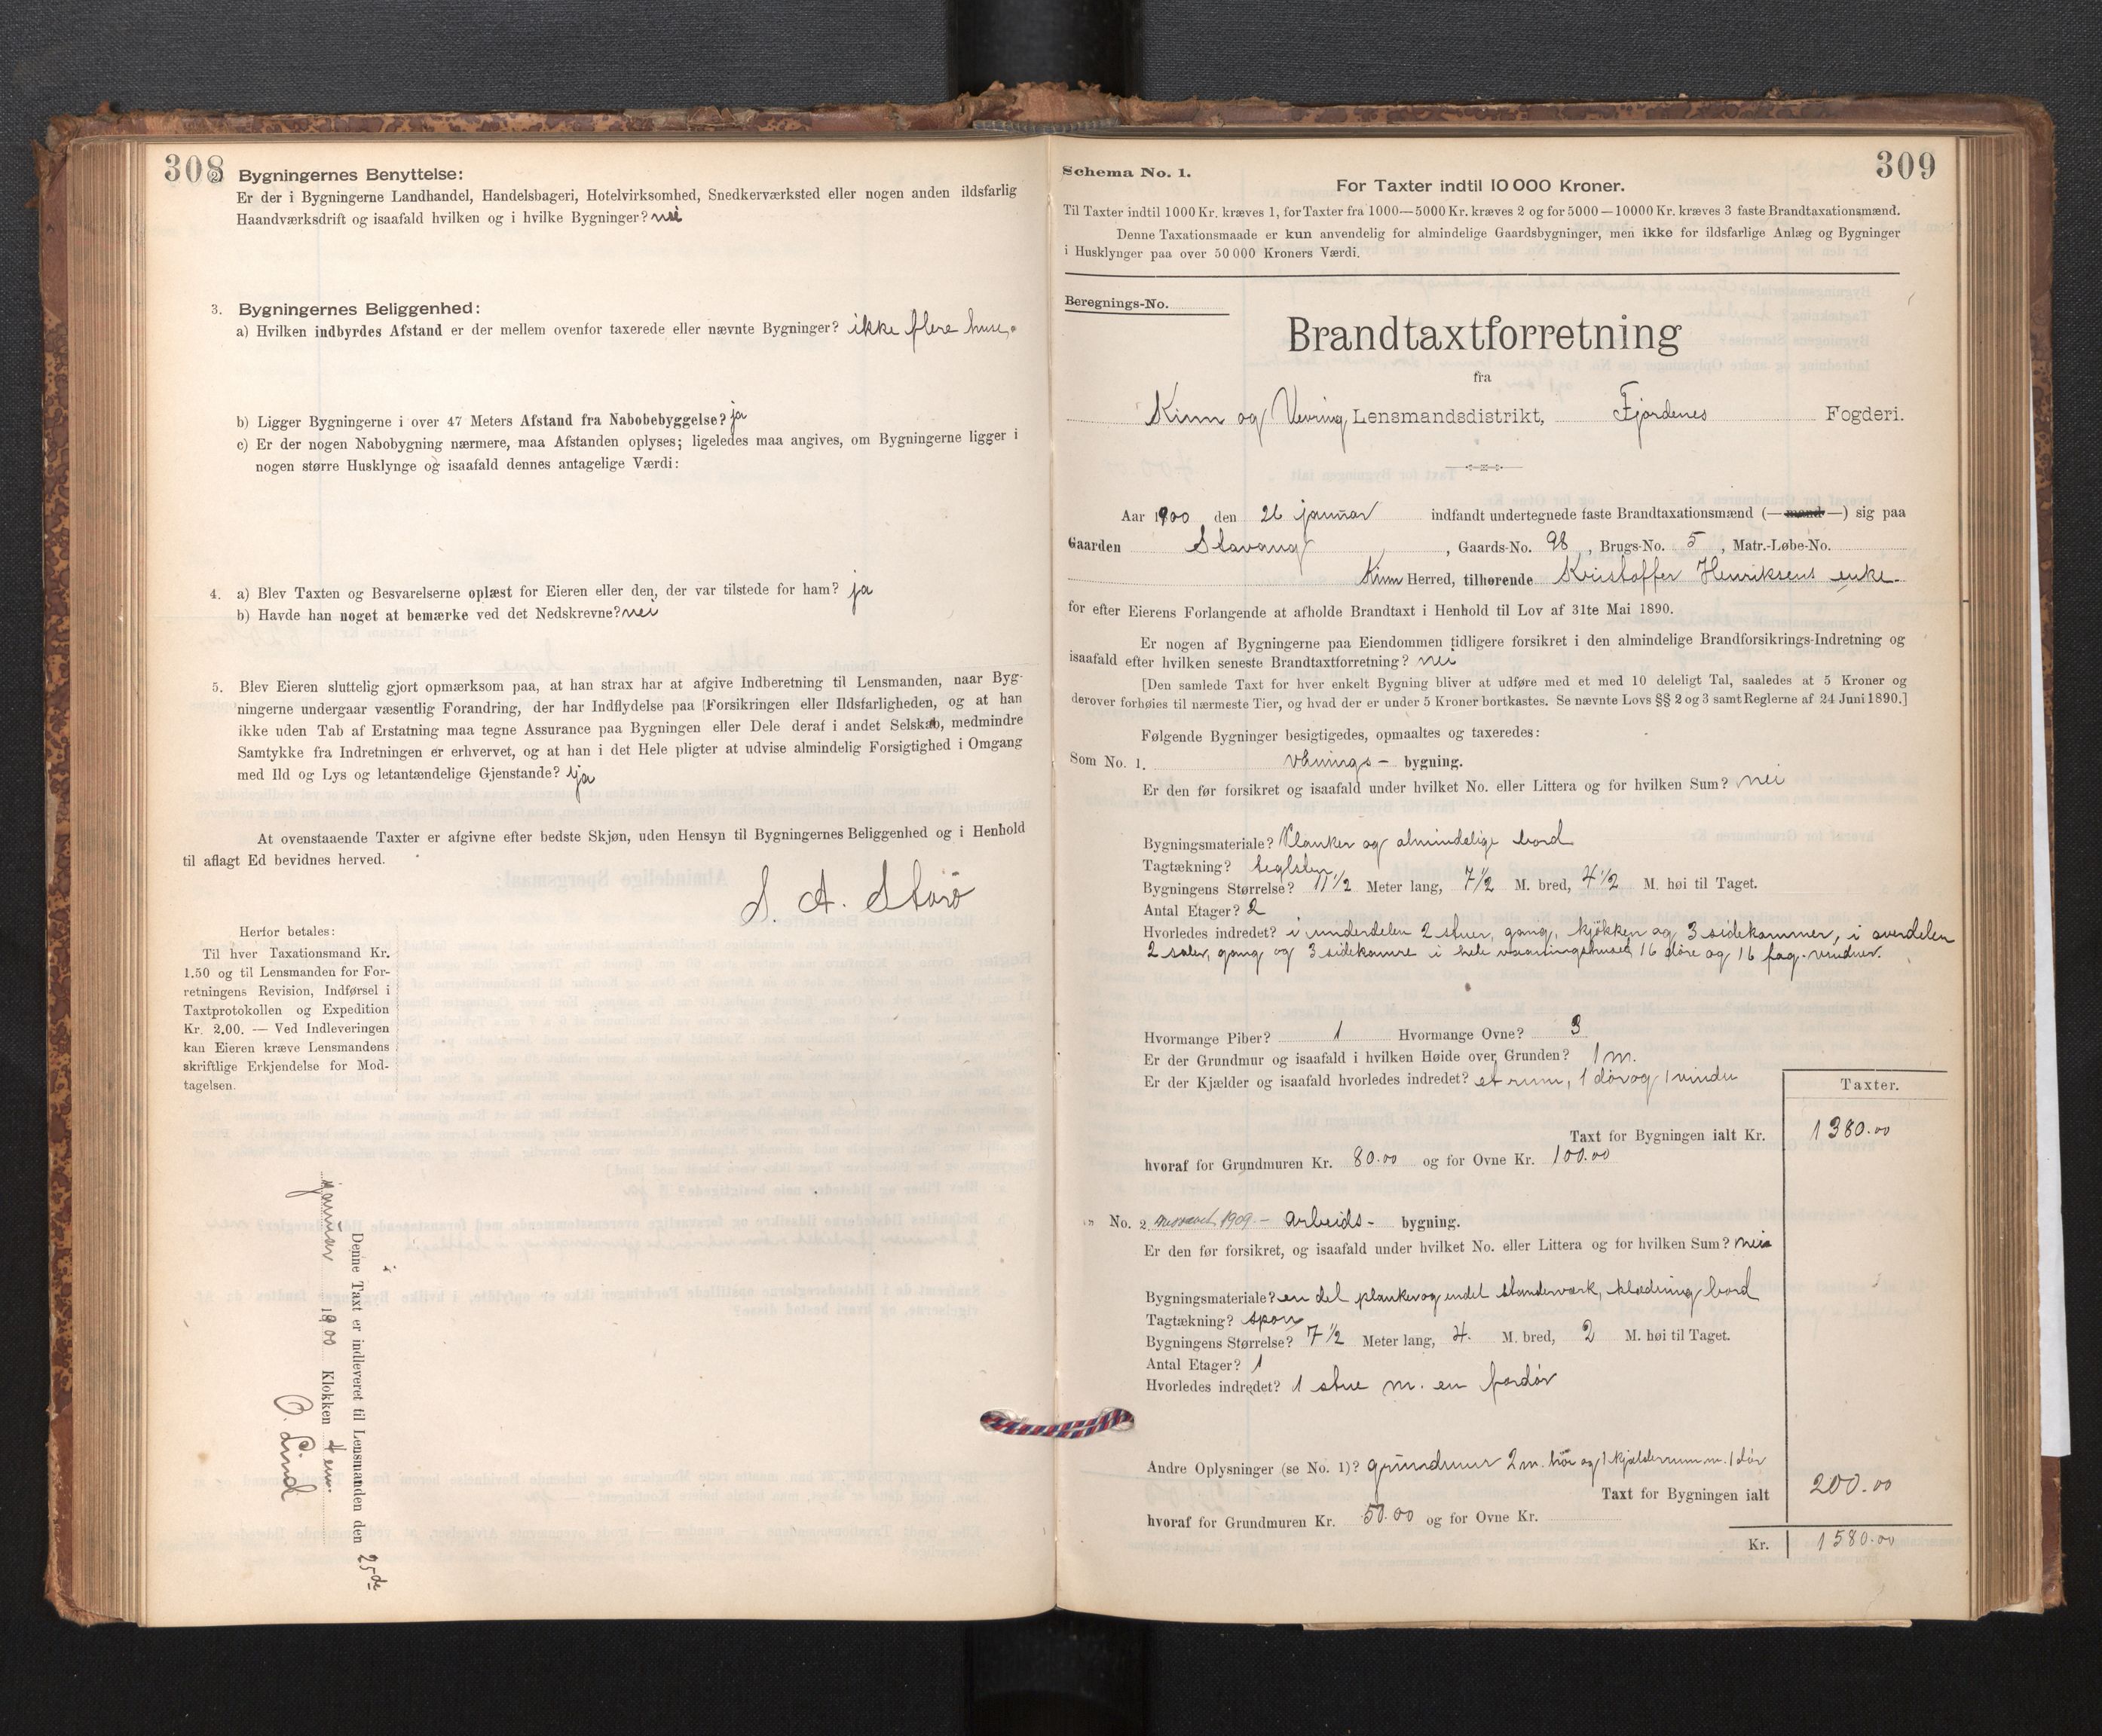 308
2. Bygningernes Benyttelse:
Er der i Bygningerne Landhandel, Handelsbageri, Hotelvirksomhed, Snedkerværksted eller nogen anden ildsfarlig
Haandværksdrift og isaafald hvilken og i hvilke Bygninger? nei
3. Bygningernes Beliggenhed:
a) Hvilken indbyrdes Afstand er der mellem ovenfor taxerede eller nævnte Bygninger? ikke flere huse.
b) Ligger Bygningerne i over 47 Meters Afstand fra Nabobebyggelse? ja
c) Er der nogen Nabobygning nærmere, maa Afstanden oplyses; ligeledes maa angives, om Bygningerne ligger i
nogen større Husklynge og isaafald dennes antagelige Værdi:
4. a) Blev Taxten og Besvarelserne oplæst for Eieren eller den, der var tilstede for ham? ja
b) Havde han noget at bemærke ved det Nedskrevne? nei
5. Blev Eieren sluttelig gjort opmærksom paa, at han strax har at afgive Indberetning til Lensmanden, naar Byg-
ningerne undergaar væsentlig Forandring, der har Indflydelse paa Forsikringen eller Ildsfarligheden, og at han
ikke uden Tab af Erstatning maa tegne Assurance paa Bygningen eller Dele deraf i andet Selskab, medmindre
Samtykke fra Indretningen er erhvervet, og at han i det Hele pligter at udvise almindelig Forsigtighed i Omgang
med Ild og Lys og letantændelige Gjenstande? ja
At ovenstaaende Taxter er afgivne efter bedste Skjøn, uden Hensyn til Bygningernes Beliggenhed og i Henhold
til aflagt Ed bevidnes herved.
S. A. Storø
Herfor betales:
Til hver Taxationsmand Kr.
1.50 og til Lensmanden for For-
retningens Revision, Indførsel i
Taxtprotokollen og Expedition
Kr. 2.00. — Ved Indleveringen
kan Eieren kræve Lensmandens
skriftlige Erkjendelse for Mod-
tagelsen.
Denne Taxt er indleveret til Lensmanden den 25de
januar 1900 Klokken 4 em.
O. Lind
309
Schema No. 1.
For Taxter indtil 10 000 Kroner.
Til Taxter indtil 1000 Kr. kræves 1, for Taxter fra 1000—5000 Kr. kræves 2 og for 5000—10000 Kr. kræves 3 faste Brandtaxationsmænd.
Denne Taxationsmaade er kun anvendelig for almindelige Gaardsbygninger, men ikke for ildsfarlige Anlæg og Bygninger
i Husklynger paa over 50 000 Kroners Værdi.
Beregnings-No.
Brandtaxtforretning
fra
Kinn og Vevring Lensmandsdistrikt, Fjordenes Fogderi.
Aar 1900 den 26 januar indfandt undertegnede faste Brandtaxationsmænd (—mand—) sig paa
Gaarden Stavang, Gaards-No. 98, Brugs-No. 5, Matr.-Løbe-No.
Kinn Herred, tilhørende Kristoffer Henriksens enke.
for efter Eierens Forlangende at afholde Brandtaxt i Henhold til Lov af 31te Mai 1890.
Er nogen af Bygningerne paa Eiendommen tidligere forsikret i den almindelige Brandforsikrings-Indretning og
isaafald efter hvilken seneste Brandtaxtforretning? nei
[Den samlede Taxt for hver enkelt Bygning bliver at udføre med et med 10 deleligt Tal, saaledes at 5 Kroner og
derover forhøies til nærmeste Tier, og hvad der er under 5 Kroner bortkastes. Se nævnte Lovs §§ 2 og 3 samt Reglerne af 24 Juni 1890.]
Følgende Bygninger besigtigedes, opmaaltes og taxeredes:
Som No. 1. vånings- bygning.
Er den før forsikret og isaafald under hvilket No. eller Littera og for hvilken Sum? nei
Bygningsmateriale? Planker og almindelige bord
Tagtækning? teglsten
Bygningens Størrelse? 11 1/2 Meter lang, 7 1/2 M. bred, 4 1/2 M. høi til Taget.
Antal Etager? 2
Hvorledes indredet? i underdelen 2 stuer, gang, kjøkken og 3 sidekammer, i overdelen
2 saler, gang og 3 sidekamre i hele vaaningshuset 16 døre og 16 fag vinduer.
Hvormange Piber? 1 Hvormange Ovne? 3
Er der Grundmur og isaafald i hvilken Høide over Grunden? 1 m.
Er der Kjælder og isaafald hvorledes indredet? et rum, 1 dør og 1 vindu
Taxter.
Taxt for Bygningen ialt Kr. 1380.00
hvoraf for Grundmuren Kr. 80.00 og for Ovne Kr. 100.00
" No. 2. 1909 - arbeids- bygning.
Er den før forsikret, og isaafald under hvilket No. eller Littera og for hvilken Sum? nei
Bygningsmateriale? en del planker og endel standerværk, klædning bord
Tagtækning? spon
Bygningens Størrelse? 7 1/2 Meter lang, 4. M. bred, 2 M. høi til Taget.
Antal Etager? 1
Hvorledes indredet? 1 stue m. en fordør
Andre Oplysninger (se No. 1)? grundmur 2 m. høi og 1 kjælderrum m. 1 dør
Taxt for Bygningen ialt 200.00
hvoraf for Grundmuren Kr. 50.00 og for Ovne Kr.
Kr. 1580.00